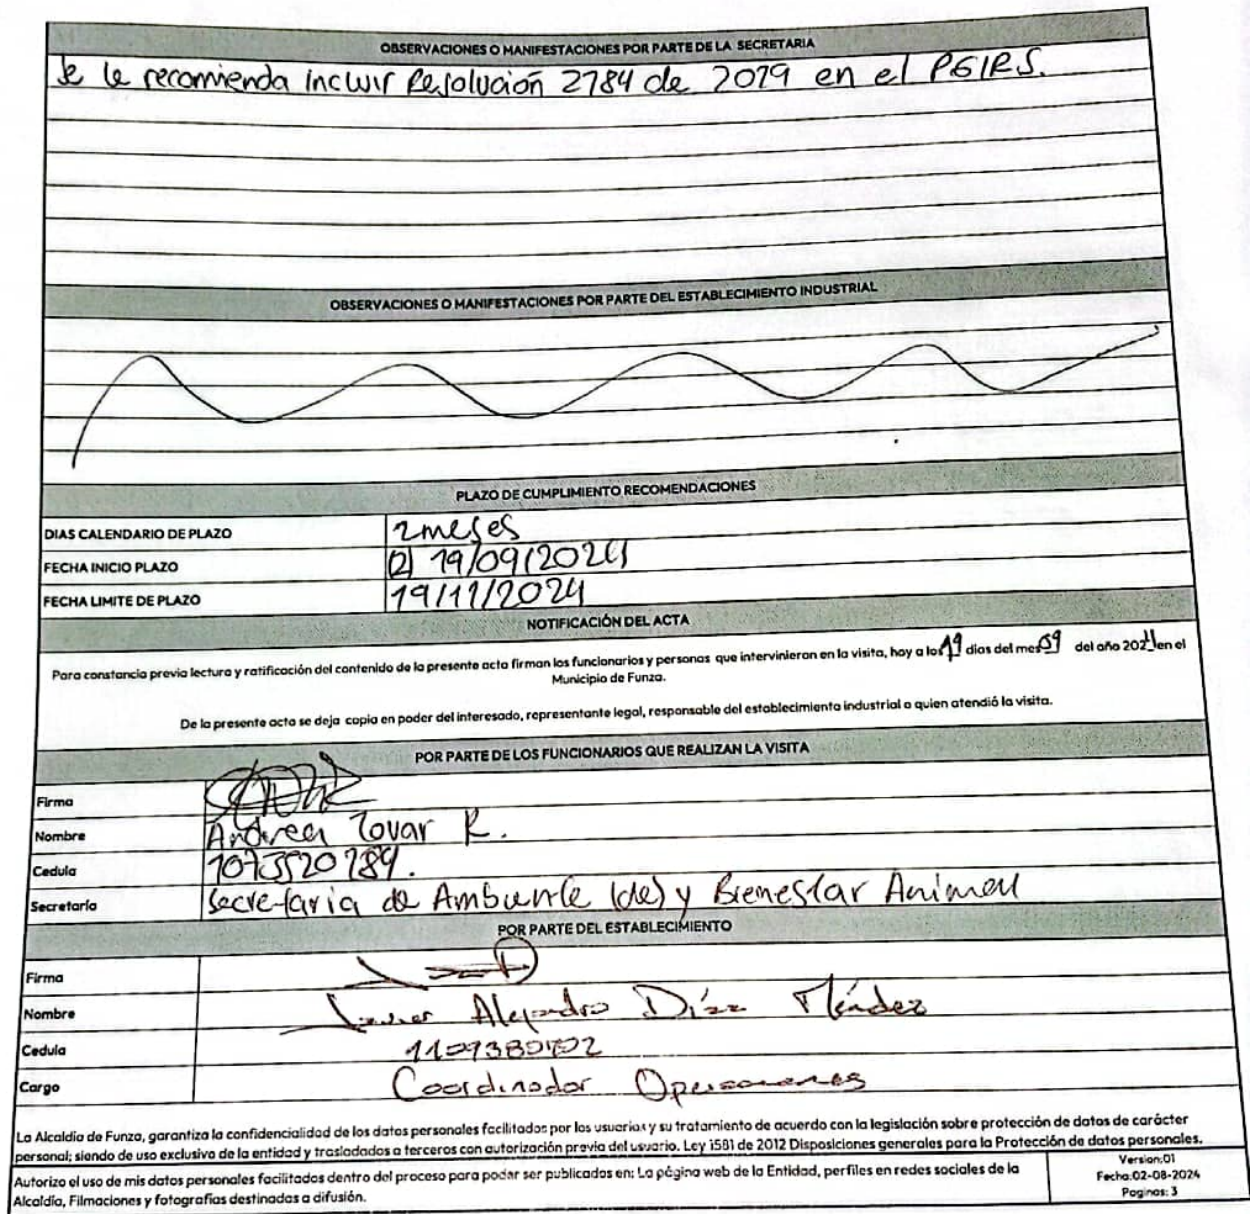 OBSERVACIONES O MANIFESTACIONES POR PARTE DE LA SECRETARIA
Se le recomienda incluir Resolución 2184 de 2019 en el PGIRS.
OBSERVACIONES O MANIFESTACIONES POR PARTE DEL ESTABLECIMIENTO INDUSTRIAL
PLAZO DE CUMPLIMIENTO RECOMENDACIONES
DIAS CALENDARIO DE PLAZO 2 meses
FECHA INICIO PLAZO (2) 19/09/2024
FECHA LIMITE DE PLAZO 19/11/2024
NOTIFICACIÓN DEL ACTA
Para constancia previa lectura y ratificación del contenido de la presente acta firman los funcionarios y personas que intervinieron en la visita, hoy a los 19 dias del mes 09 del año 2024 en el
Municipio de Funza.
De la presente acta se deja copia en poder del interesado, representante legal, responsable del establecimiento industrial o quien atendió la visita.
POR PARTE DE LOS FUNCIONARIOS QUE REALIZAN LA VISITA
Firma
Nombre Andrea Tovar R.
Cedula 1073520189.
Secretaría Secretaria de Ambiente (de) y Bienestar Animal
POR PARTE DEL ESTABLECIMIENTO
Firma
Nombre Javier Alejandro Díaz Méndez
Cedula
Cargo Coordinador Operaciones
La Alcaldía de Funza, garantiza la confidencialidad de los datos personales facilitados por los usuarios y su tratamiento de acuerdo con la legislación sobre protección de datos de carácter
personal; siendo de uso exclusivo de la entidad y trasladados a terceros con autorización previa del usuario. Ley 1581 de 2012 Disposiciones generales para la Protección de datos personales.
Autorizo el uso de mis datos personales facilitados dentro del proceso para poder ser publicados en: La página web de la Entidad, perfiles en redes sociales de la
Alcaldía, Filmaciones y fotografías destinadas a difusión.
Version:01
Fecha:02-08-2024
Paginas: 3